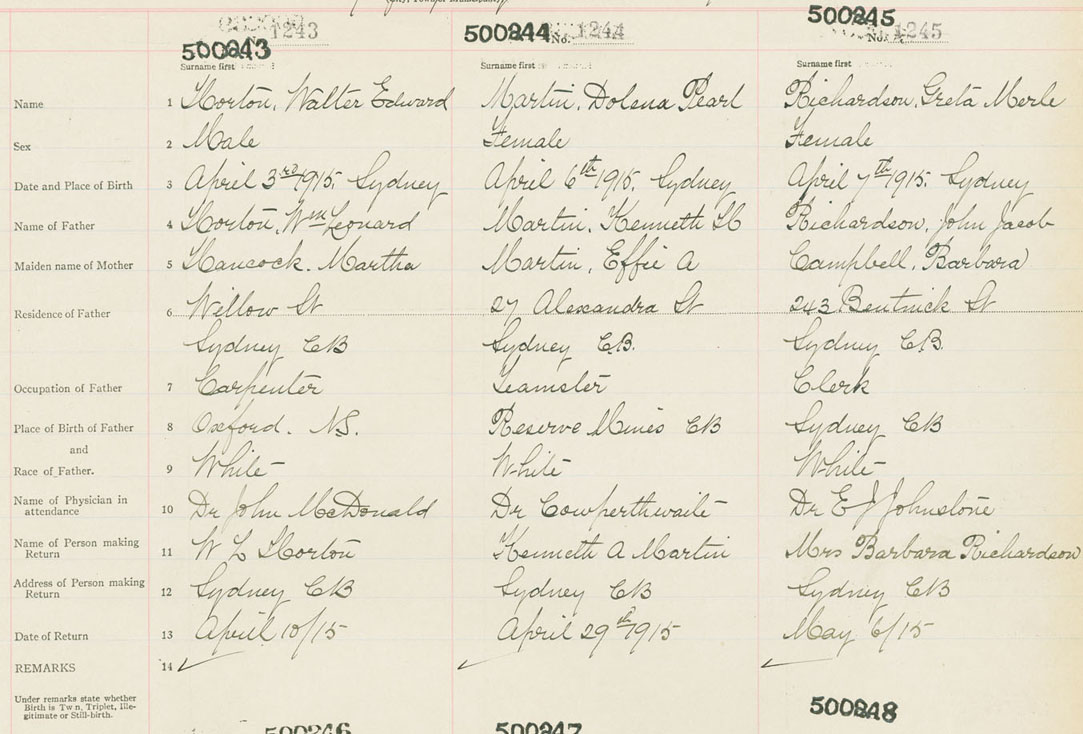 500243 1243
500244 No. 1244
500245 No. 1245
Surname first Surname first Surname first
Name 1 Horton, Walter Edward Martin, Dolena Pearl Richardson, Greta Merle
Sex 2 Male Female Female
Date and Place of Birth 3 April 3rd 1915. Sydney April 6th 1915. Sydney April 7th 1915. Sydney
Name of Father 4 Horton, Wm Leonard Martin, Kenneth Richardson, John Jacob
Maiden name of Mother 5 Hancock. Martha Martin, Effie A Campbell, Barbara
Residence of Father 6 Willow St 27 Alexandra St 243 Bentnick St
Sydney CB Sydney C.B. Sydney C.B.
Occupation of Father 7 Carpenter Teamster Clerk
Place of Birth of Father 8 Oxford. N.S. Reserve Mines CB Sydney CB
and
Race of Father. 9 White White White
Name of Physician in
attendance 10 Dr John McDonald Dr Cowperthwaite Dr E J Johnstone
Name of Person making
Return 11 W L Horton Kenneth A Martin Mrs Barbara Richardson
Address of Person making
Return 12 Sydney CB Sydney CB Sydney CB
Date of Return 13 April 10/15 April 29th 1915 May 6/15
REMARKS 14
Under remarks state whether
Birth is Twn, Triplet, Ille-
gitimate or Still-birth.
500246 500247 500248